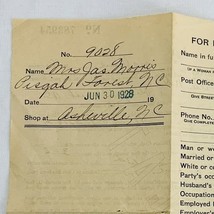 No. 9028
Name Mrs Jas Morris
Pisgah Forest, N.C
JUN 30 1928
Date 19
Shop at Asheville, N.C
FOR
Name in fu
IF A WOMAN
Post Office
GIVE STREET
Phone No.
GIVE COMPLETE
Man or wo
Married or
White or co
Party's occu
Husband's
Occupation
Employed
Employed